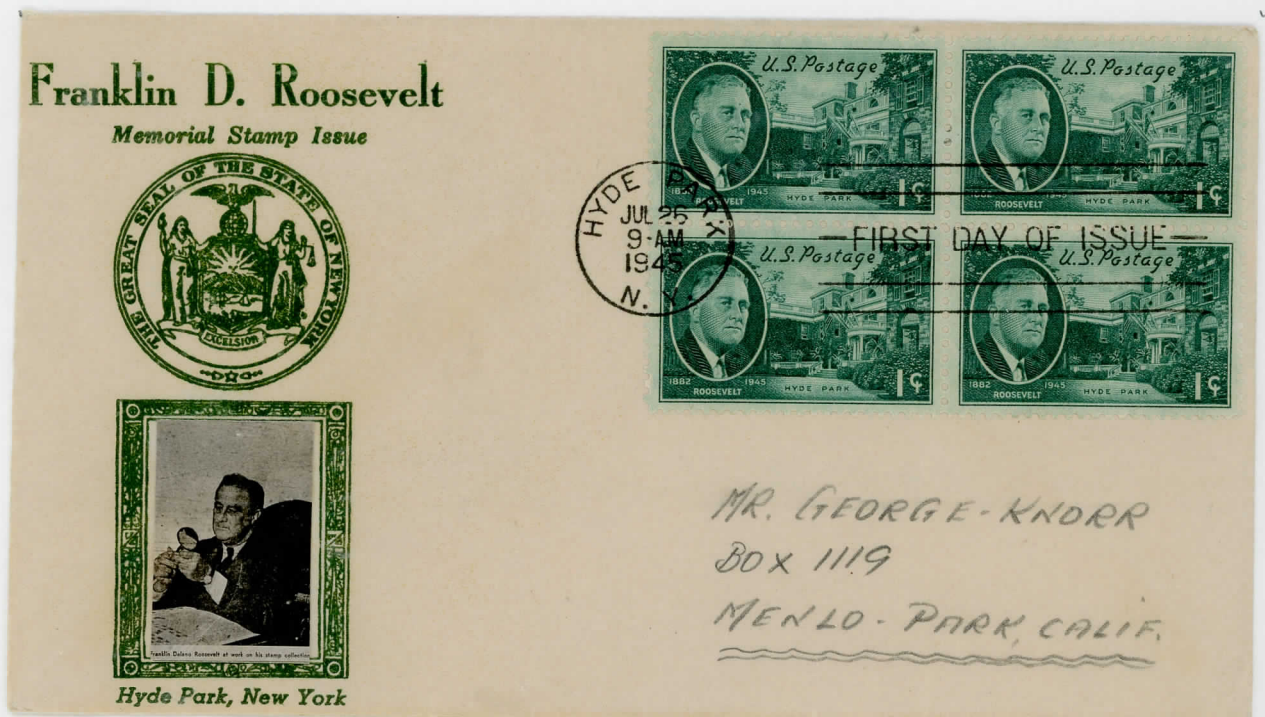 Franklin D. Roosevelt
Memorial Stamp Issue
THE GREAT SEAL OF THE STATE OF NEW YORK
EXCELSIOR
Franklin Delano Roosevelt at work on his stamp collection
Hyde Park, New York
U.S. Postage
1882 1945
ROOSEVELT
HYDE PARK
1¢
U.S. Postage
1882 1945
ROOSEVELT
HYDE PARK
1¢
U.S. Postage
1882 1945
ROOSEVELT
HYDE PARK
1¢
U.S. Postage
1882 1945
ROOSEVELT
HYDE PARK
1¢
HYDE PARK
JUL 26
9-AM
1945
N. Y.
FIRST DAY OF ISSUE
MR. GEORGE-KNORR
BOX 1119
MENLO-PARK, CALIF.